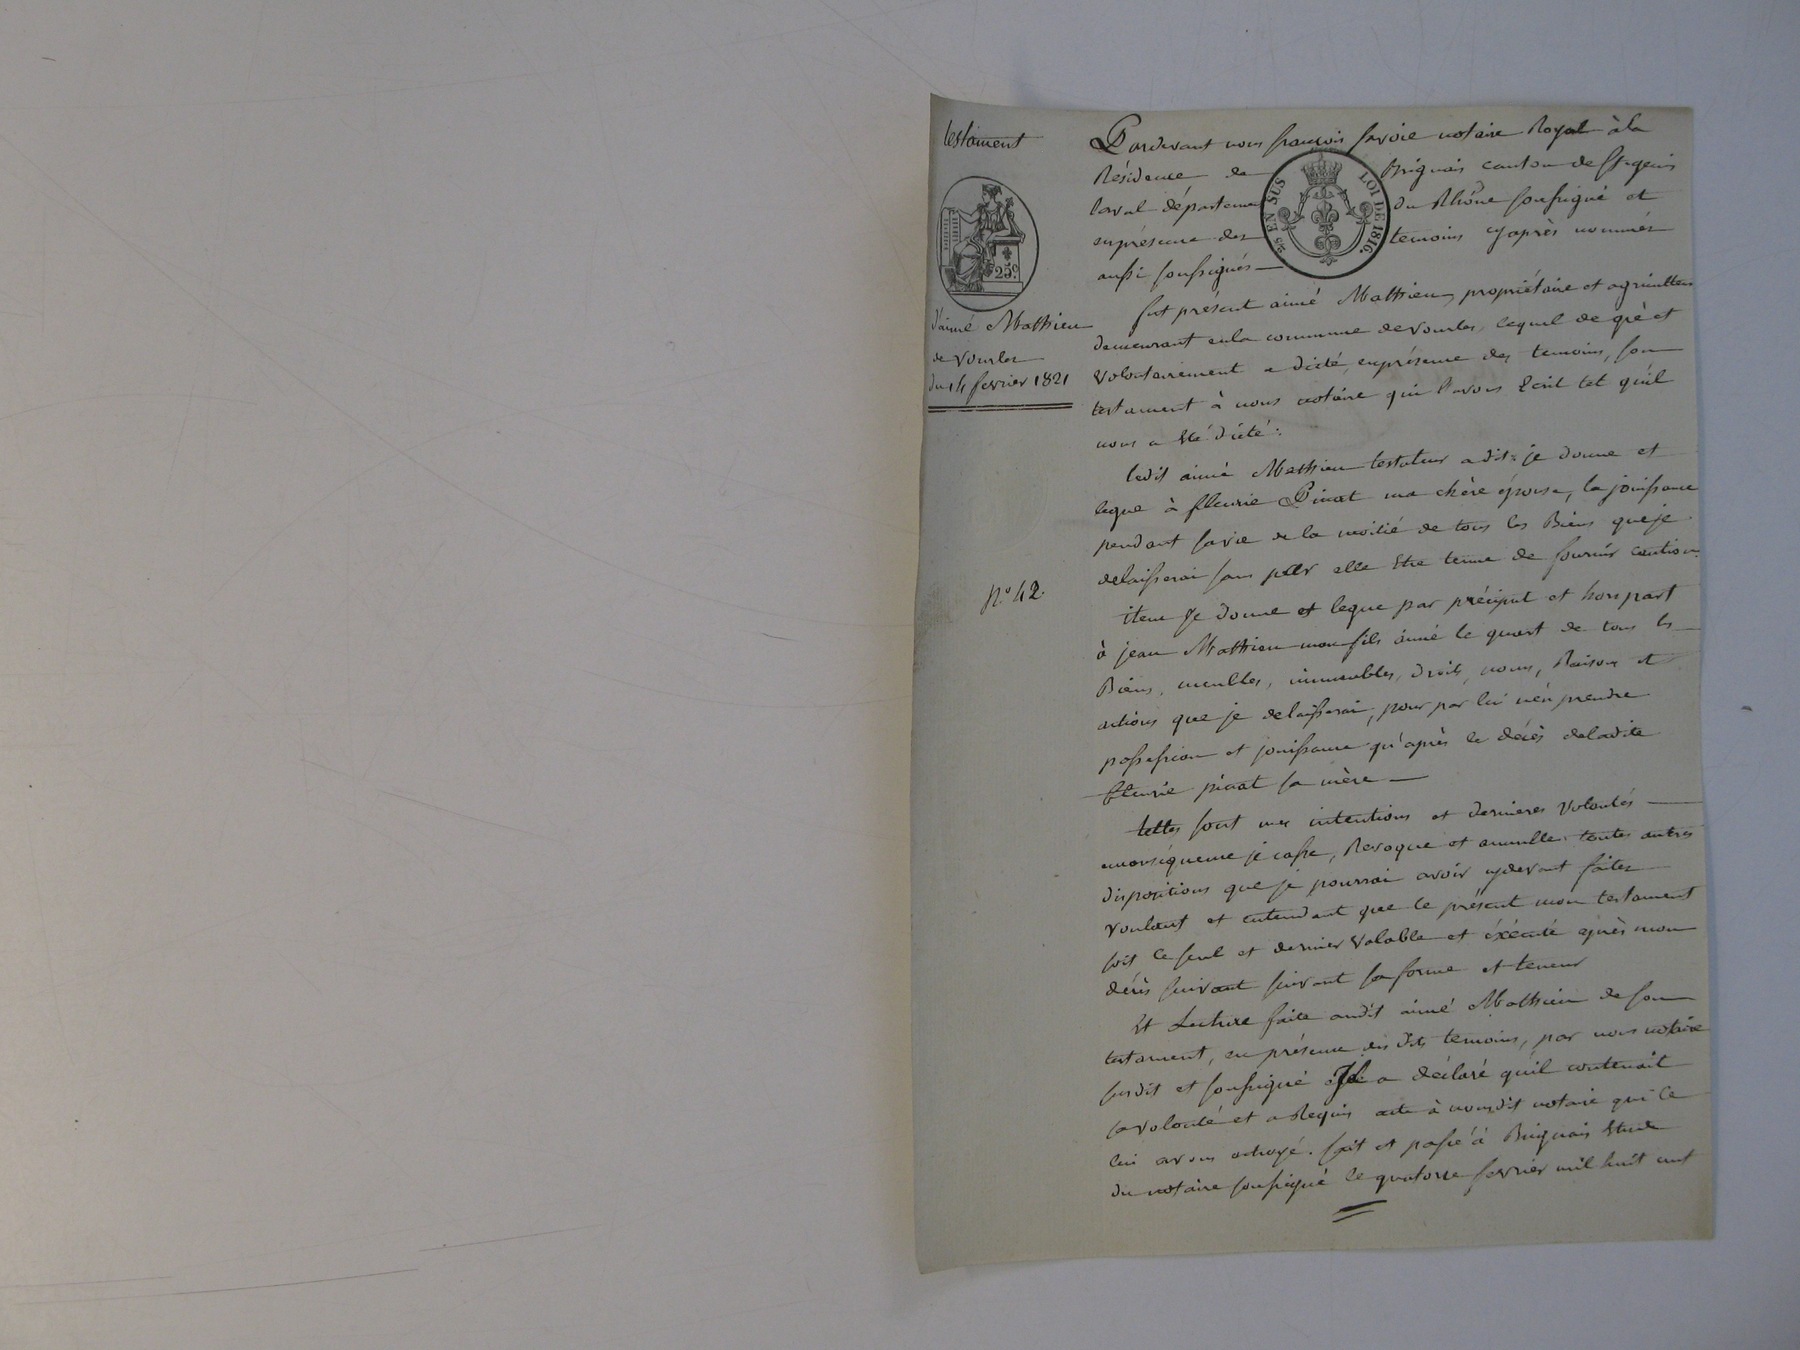 testament
25.c
d'aimé Mathieu
de vourles
du 14 fevrier 1821
N.º 42.
EN SUS
LOI DE 1816.
Pardevant nous françois savoie notaire Royal à la
Résidence de Brignais canton de St genis
laval départemen du Rhône soussigné et
enprésence des temoins cyaprès nommés
aussi soussignés
fut présent aimé Mathieu, propriétaire et agriculteur
demeurant enla commune devourles, lequel de gré et
volontairement a dicté, enprésence des temoins, son
testament à nous notaire qui l'avons Ecrit tel qu'il
nous a Eté dicté:
ledit aimé Mathieu testateur a dit: je donne et
legue à fleurie Pinat ma chère épouse, la jouissance
pendant savie de la moitié de tous les Biens queje
delaisserai sans par elle Etre tenue de fournir caution.
item Je donne et legue par préciput et hors part
à jean Mathieu mon fils ainé le quart de tous les
Biens, meubles, immeubles, droits, noms, Raisons et
actions que je delaisserai, pour par lui n'en prendre
possession et jouissance qu'après le décès deladite
fleurie pinat sa mère
telles sont mes intentions et dernieres volontés
enconséquence je casse, Revoque et annulle toutes autres
dispositions que je pourrai avoir cydevant faites
voulant et entendant que le présent mon testament
soit le seul et dernier valable et éxécuté après mon
décès suivant suivant sa forme et teneur
Et Lecture faite audit aimé Mathieu de son
testament, en présence des dits temoins, par nous notaire
susdit et soussigné Il a déclaré qu'il contenait
sa volonté et a Requis acte à nousdit notaire qui le
lui avons octroyé. fait et passé à Brignais Etude
du notaire soussigné le quatorze fevrier mil huit cent